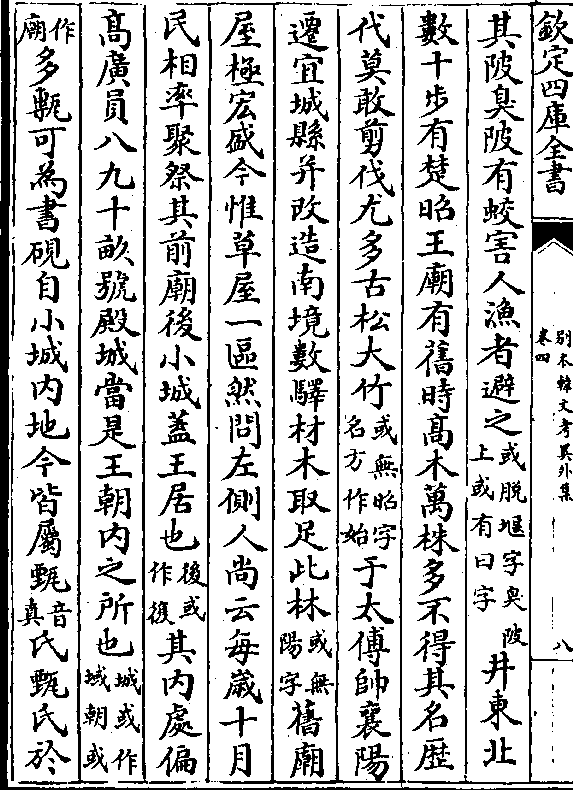 欽定四庫全書
別本韓文考異外集
卷四
八
其陂臭陂有蛟害人漁者避之或脫堰字臭陂上或有曰字井東北
數十步有楚昭王廟有舊時髙木萬株多不得其名歴
代莫敢剪伐尤多古松大竹或無昭字名方作始于太傅帥襄陽
遷宜城縣并改造南境數驛材木取足此林或無陽字舊廟
屋極宏盛今惟草屋一區然問左側人尚云每歳十月
民相率聚祭其前廟後小城蓋王居也後或作復其内處偏
髙廣員八九十畝號殿城當是王朝内之所也城或作域朝或
作廟多甎可為書硯自小城内地今皆屬甄音真氏甄氏於